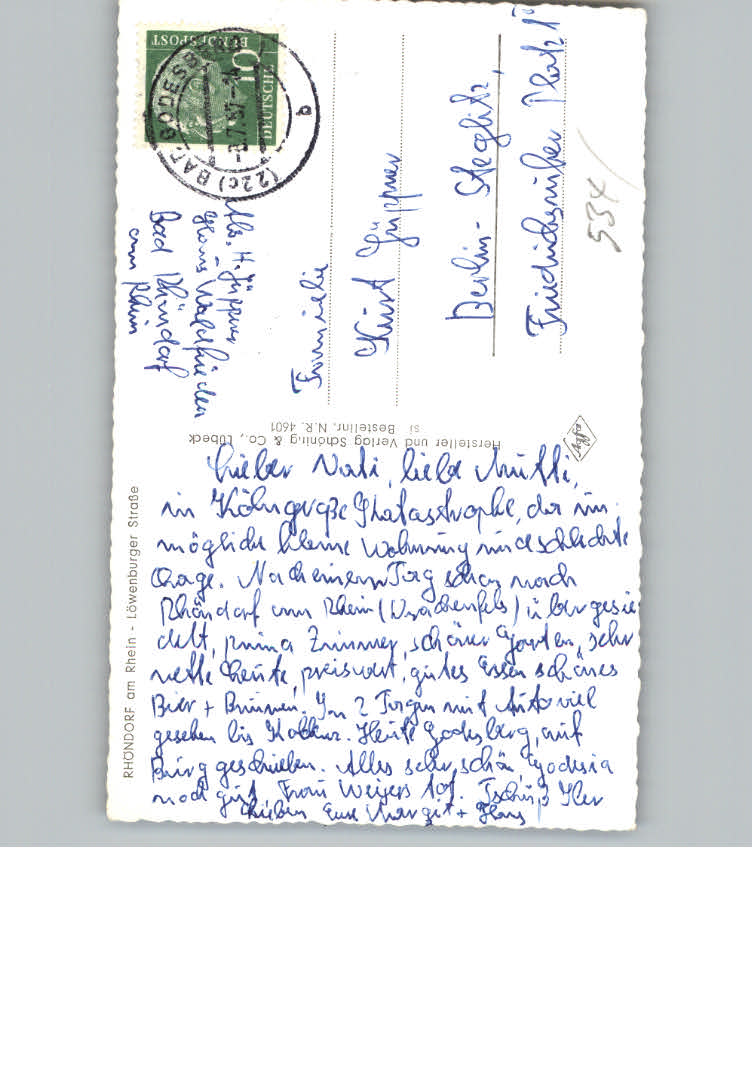 Lieber Vati, liebe Mutti,
in Köln große Katastrophe, da un-
mögliche kleine Wohnung und schlechte
Lage. Nach einem Tag schon nach
Rhöndorf am Rhein (Drachenfels) übergesie
delt, prima Zimmer, schöner Garten, sehr
nette Leute, preiswert, gutes Essen schönes
Bier + Brunnen. In 2 Tagen mit Auto viel
gesehen bis Koblenz. Heute Godesberg, auf
Burg geschrieben. Alles sehr schön, Godesia
noch gut. Frau Weyers tot. Tschüß Ihr
Lieben Eure Margit + Hans
RHÖNDORF am Rhein - Löwenburger Straße
Hersteller und Verlag Schöning & Co., Lübeck
si Bestellnr. N.R. 4601
Abs. H. Güppner
Haus Waldfrieden
Bad Rhöndorf
am Rhein
Familie
Kurt Güppner
Berlin-Steglitz,
Friedrichsruher Platz 1
534
DEUTSCHE
BUNDESPOST
10
(22c) BAD GODESBERG
-8.7.57-
b